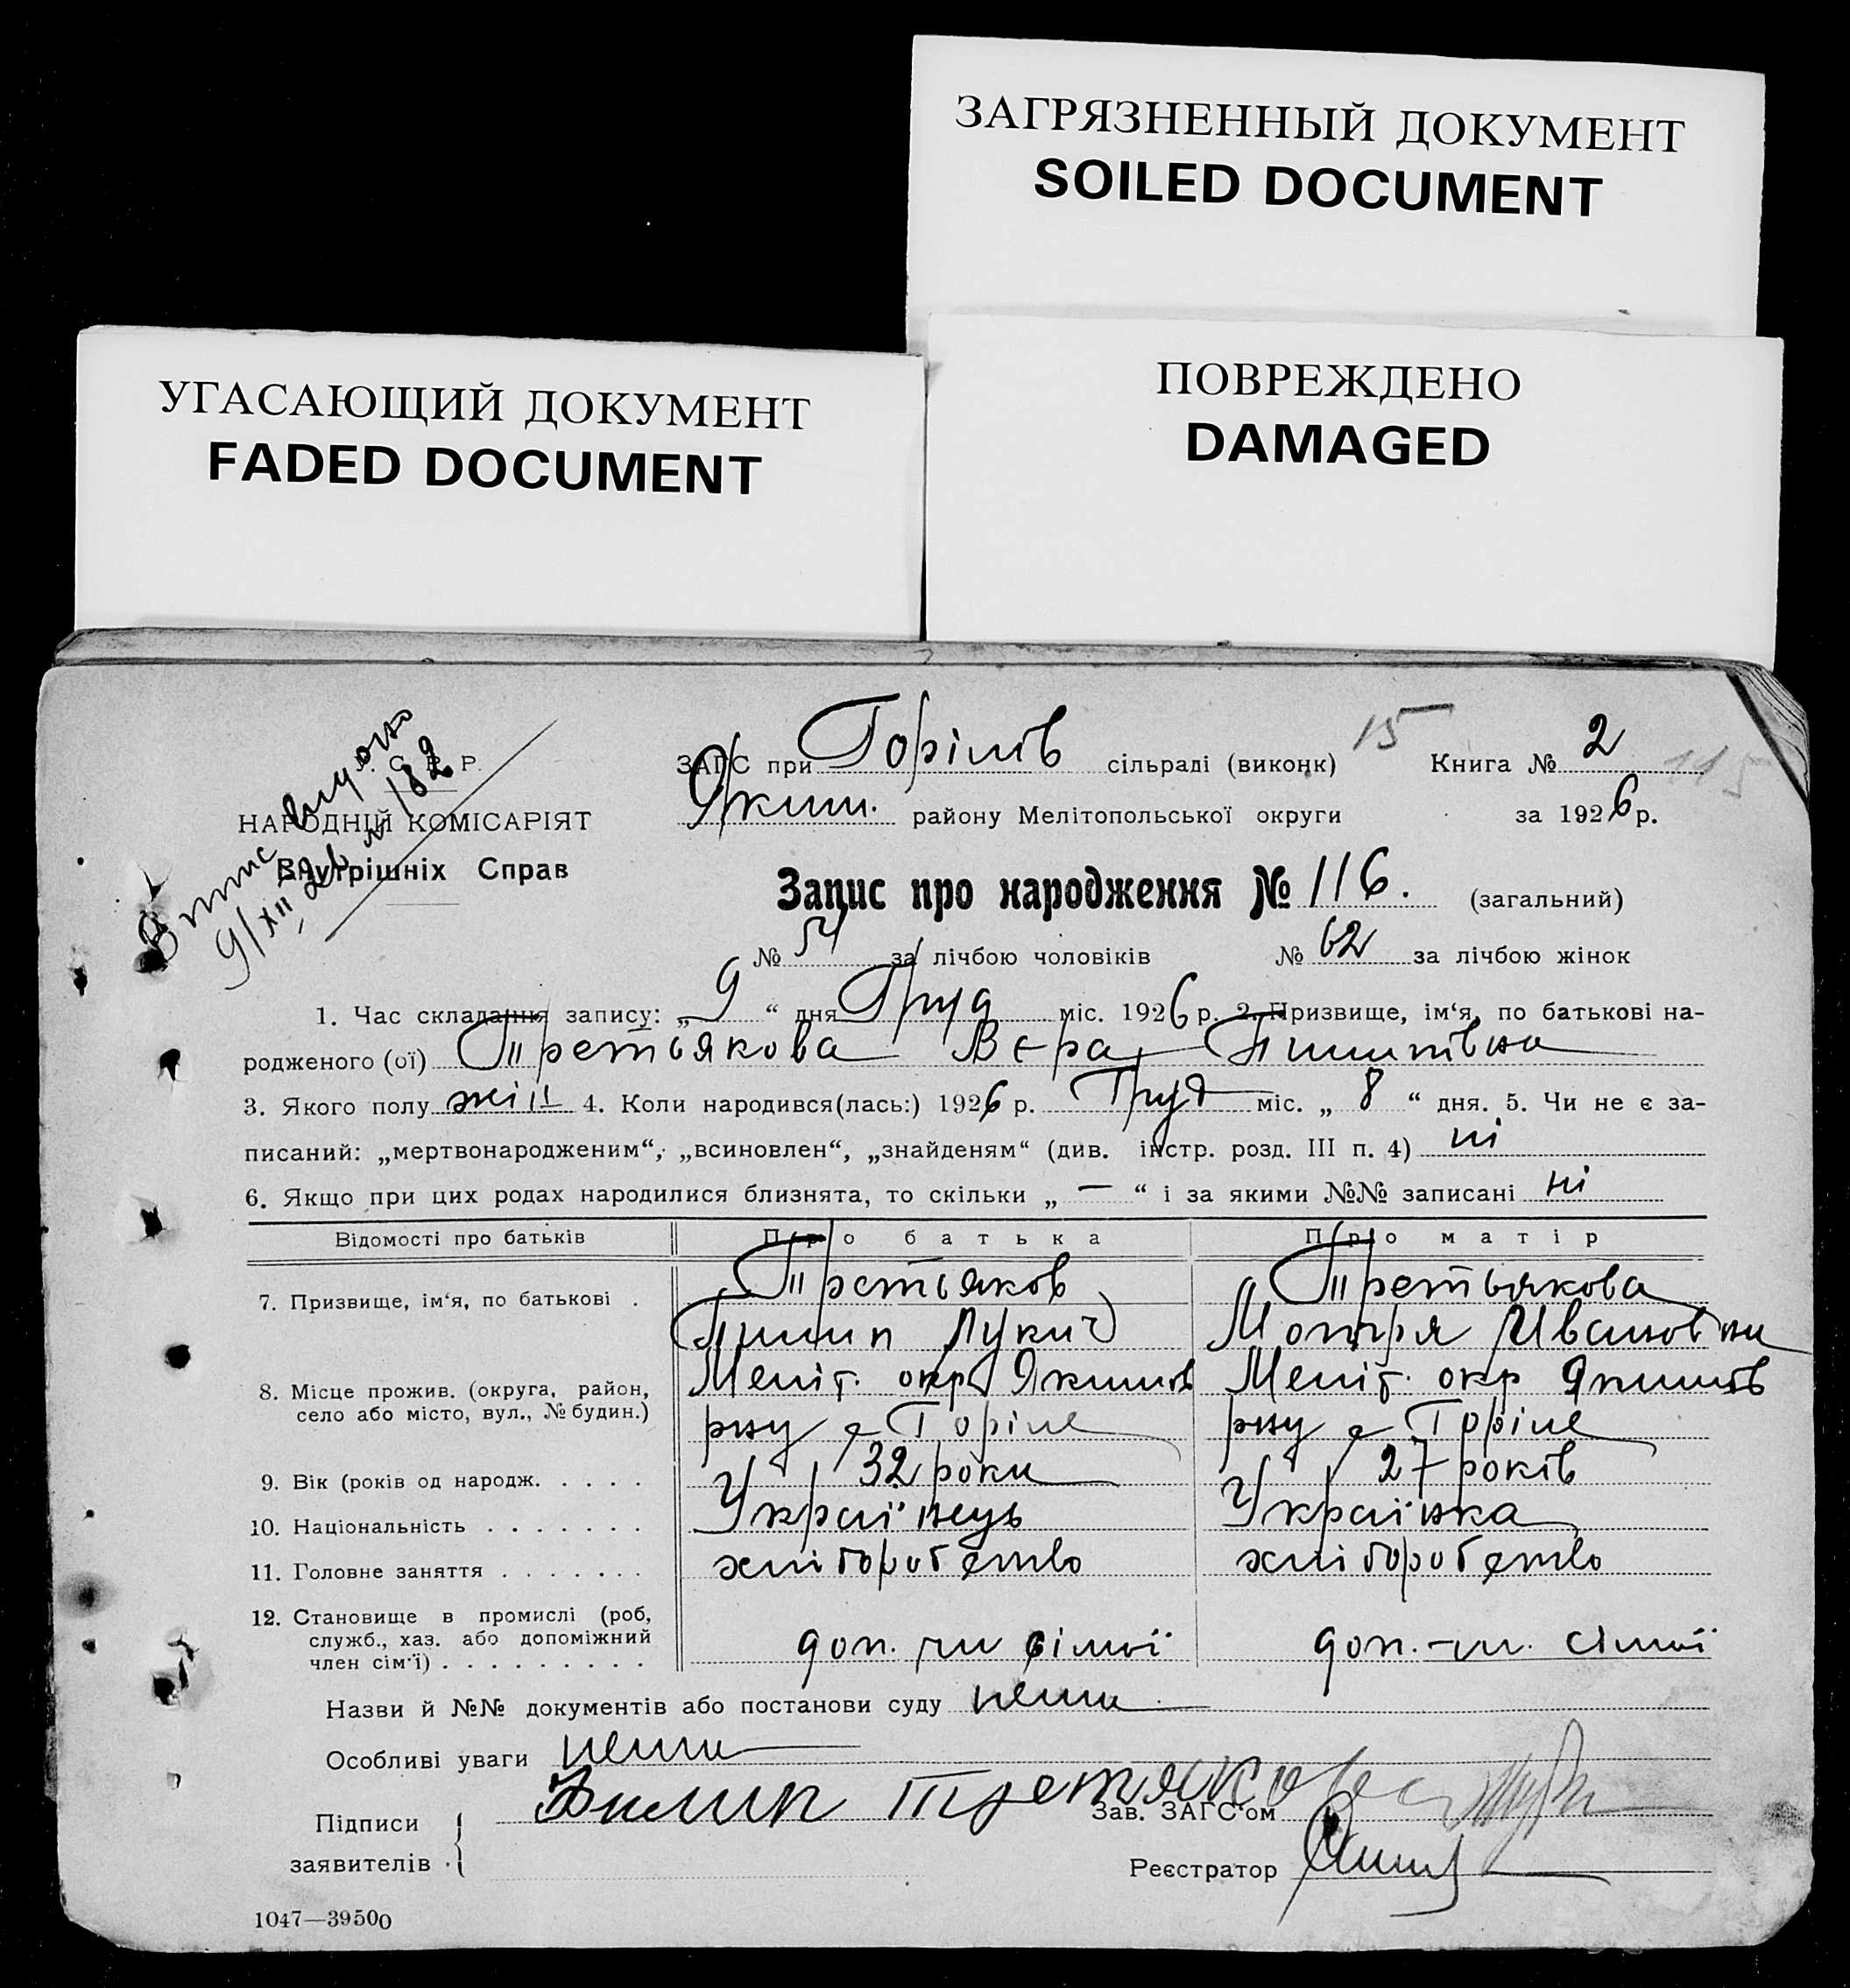 ЗАГРЯЗНЕННЫЙ ДОКУМЕНТ
SOILED DOCUMENT
УГАСАЮЩИЙ ДОКУМЕНТ
FADED DOCUMENT
ПОВРЕЖДЕНО
DAMAGED
У. С. Р. Р.
НАРОДНІЙ КОМІСАРІЯТ
Внутрішніх Справ
Випис видано
9/XII 26 № 182
ЗАГС при Горілів сільраді (виконк) 15 Книга № 2 115
Яким. району Мелітопольської округи за 1926 р.
Запис про народження № 116. (загальний)
№ 54 за лічбою чоловіків № 62 за лічбою жінок
1. Час складання запису: „9“ дня Груд міс. 1926 р. 2. Призвище, ім‘я, по батькові на-
родженого (ої) Третьякова Вєра Пилипівна
3. Якого полу жін 4. Коли народився(лась:) 1926 р. Груд міс. „8“ дня. 5. Чи не є за-
писаний: „мертвонародженим“, „всиновлен“, „знайденям“ (див. інстр. розд. III п. 4) ні
6. Якщо при цих родах народилися близнята, то скільки „—“ і за якими №№ записані ні
Відомості про батьків Про батька Про матір
7. Призвище, ім‘я, по батькові . Третьяков Третьякова
Пилип Лукич Мотря Ивановни
8. Місце прожив. (округа, район, Меліт. окр Якимів Меліт. окр Якимів
село або місто, вул., № будин.) рну с Горіле рну с Горіле
9. Вік (років од народж. . . . . 32 роки 27 років
10. Національність . . . . . . . Українець Українка
11. Головне заняття . . . . . . . хліборобство хліборобство
12. Становище в промислі (роб,
служб., хаз. або допоміжний
член сім‘ї) . . . . . . . . . доп. чл сімї доп. чл. сімї
Назви й №№ документів або постанови суду нема
Особливі уваги нема
Підписи
заявителів Филип Третяков Зав. ЗАГС‘ом
Реєстратор
1047—39500